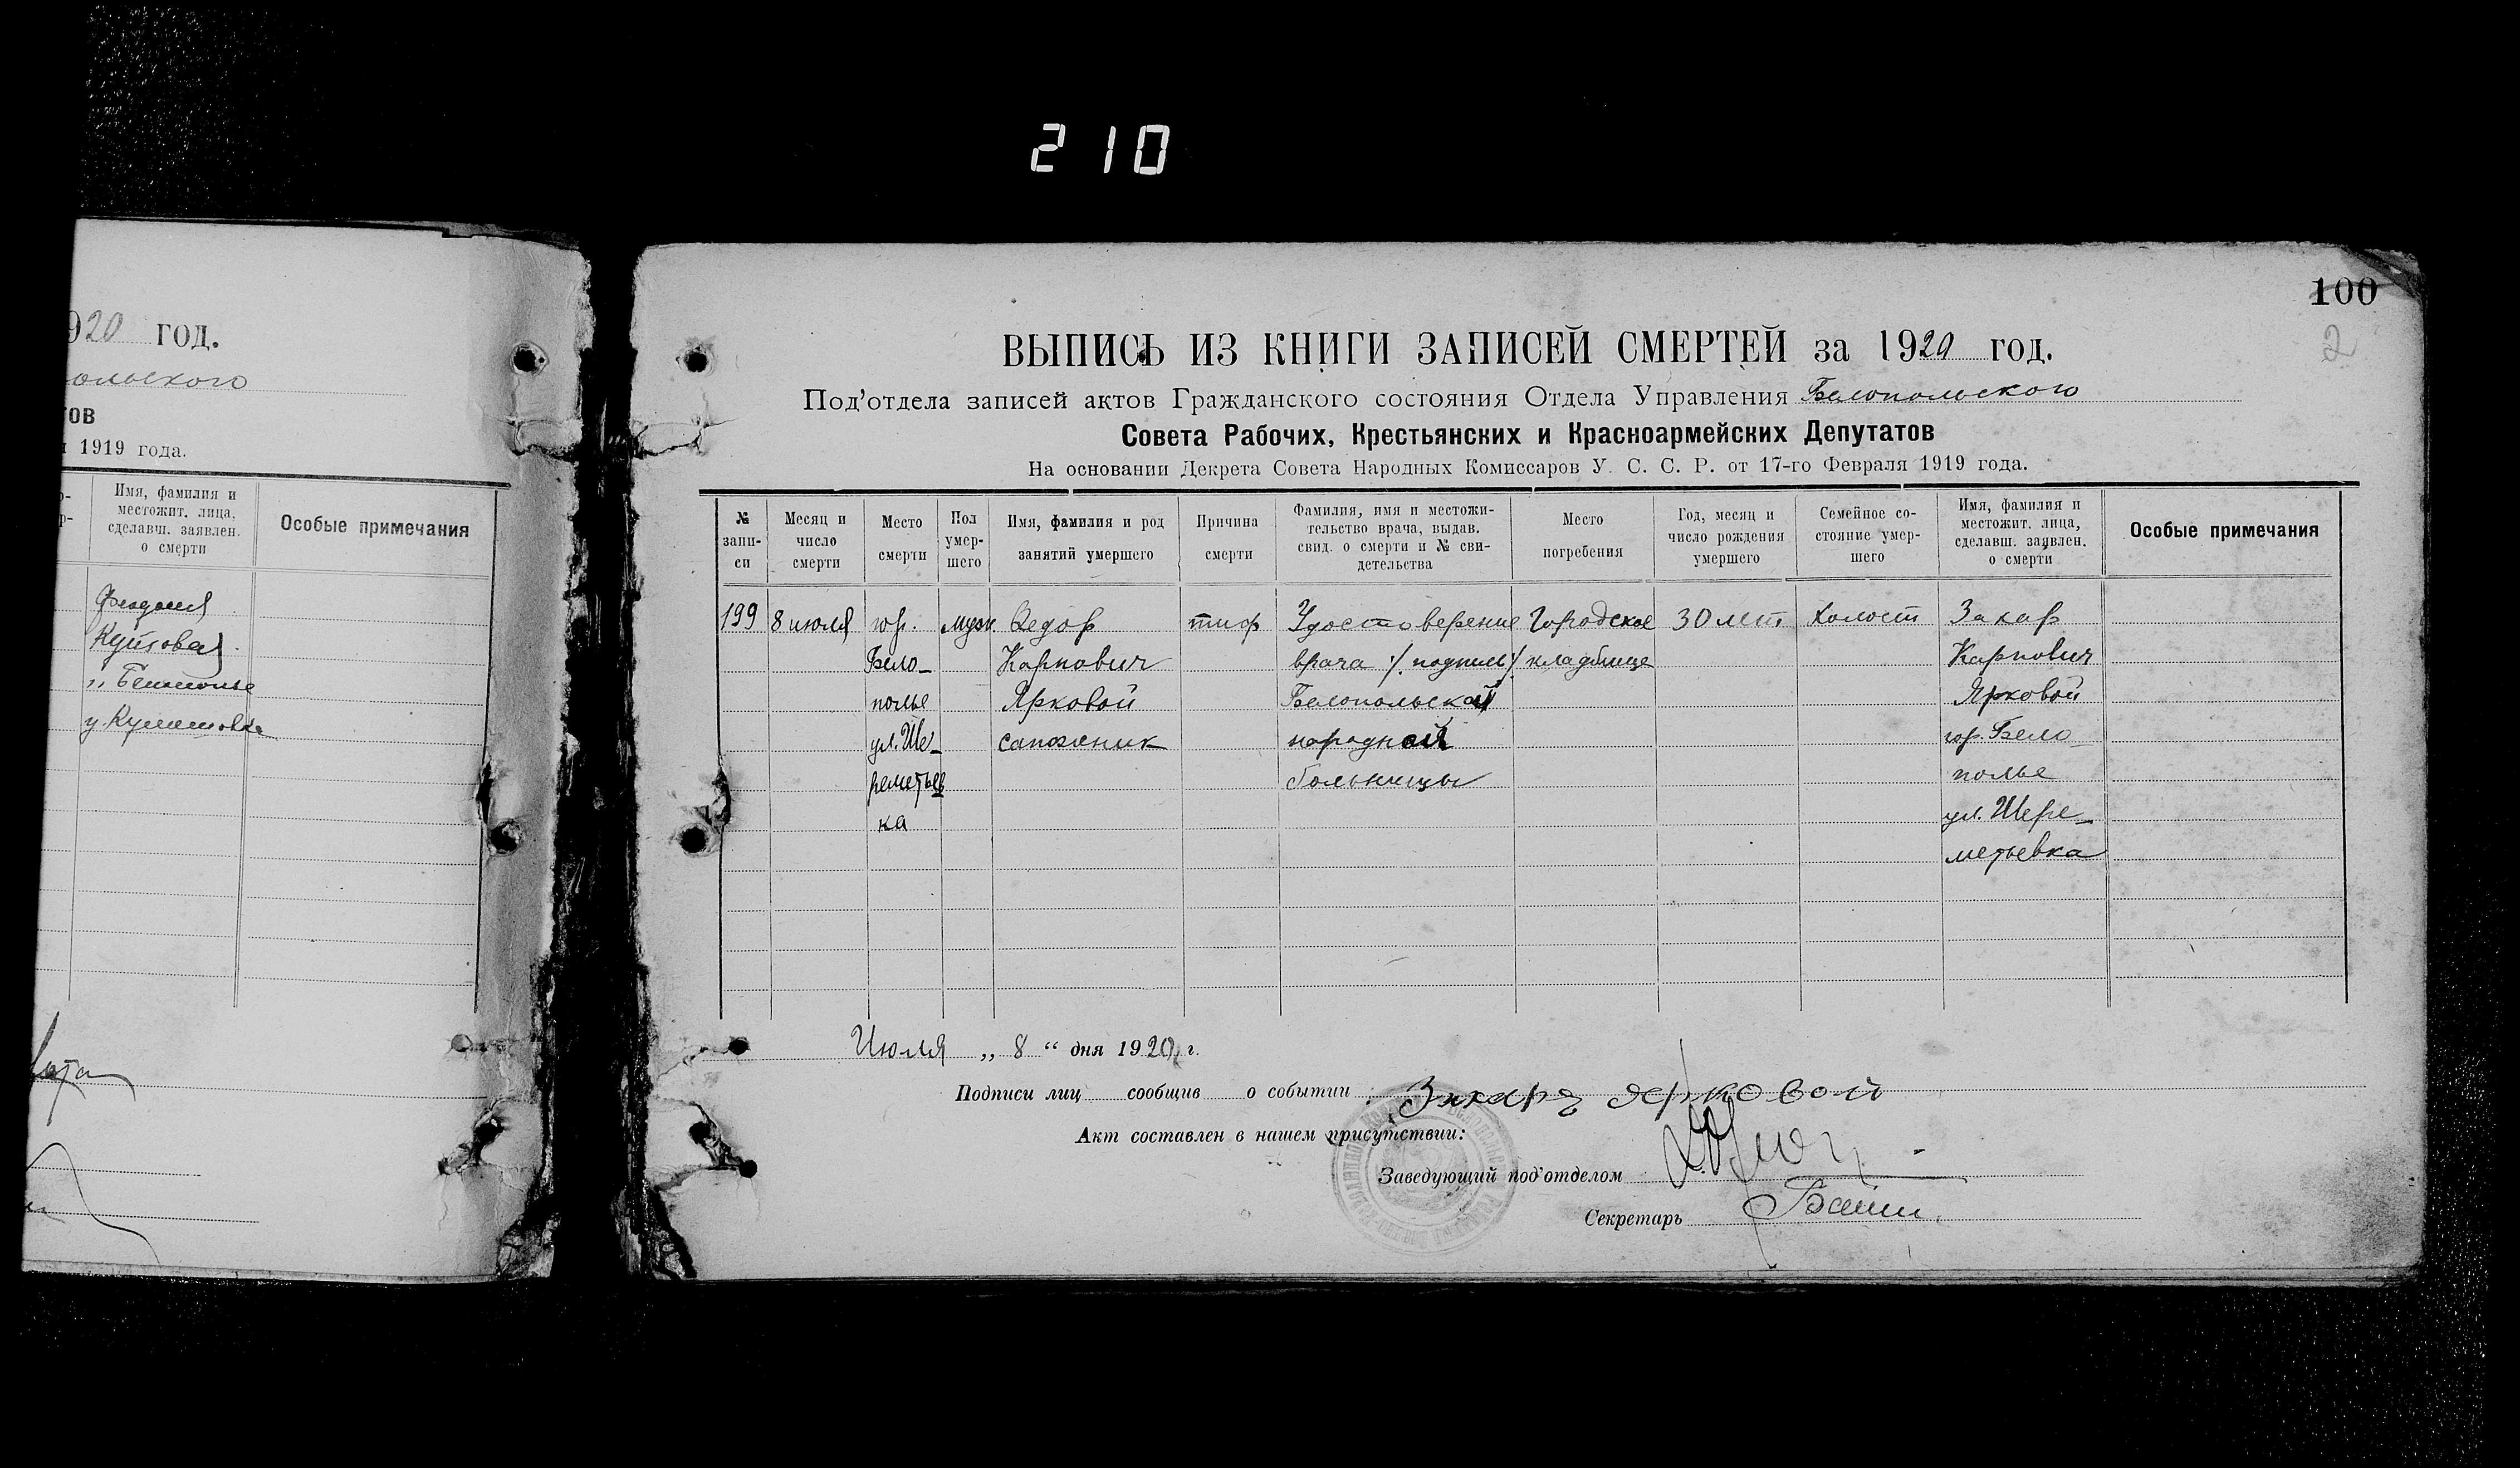 210
920 год.
ольского
тов
1919 года.
Имя, фамилия и
местожит. лица,
сделавш. заявлен.
о смерти
Особые примечания
Купсовая
100
2
ВЫПИСЬ ИЗ КНИГИ ЗАПИСЕЙ СМЕРТЕЙ за 1920 год.
Под’отдела записей актов Гражданского состояния Отдела Управления Белопольского
Совета Рабочих, Крестьянских и Красноармейских Депутатов
На основании Декрета Совета Народных Комиссаров У. С. С. Р. от 17-го Февраля 1919 года.
№
запи-
си
Месяц и
число
смерти
Место
смерти
Пол
умер-
шего
Имя, фамилия и род
занятий умершего
Причина
смерти
Фамилия, имя и местожи-
тельство врача, выдав.
свид. о смерти и № сви-
детельства
Место
погребения
Год, месяц и
число рождения
умершего
Семейное со-
стояние умер-
шего
Имя, фамилия и
местожит. лица,
сделавш. заявлен.
о смерти
Особые примечания
199
8 июля
гор.
Бело-
полье
ул. Ше-
реметьев
ка
муж.
Федор
Карпович
Ярковой
сапожник
тиф
Удостоверение
врача /подпись/
Белопольской
народной
больницы
Городское
кладбище
30 лет
холост
Захар
Карпович
Ярковой
гор. Бело
полье
ул. Шере-
метьевка
Июля „ 8 “ дня 1920 г.
Подписи лиц сообщив о событии Захаръ Ярковой
Акт составлен в нашем присутствии:
Заведующий под’отделом
Секретарь